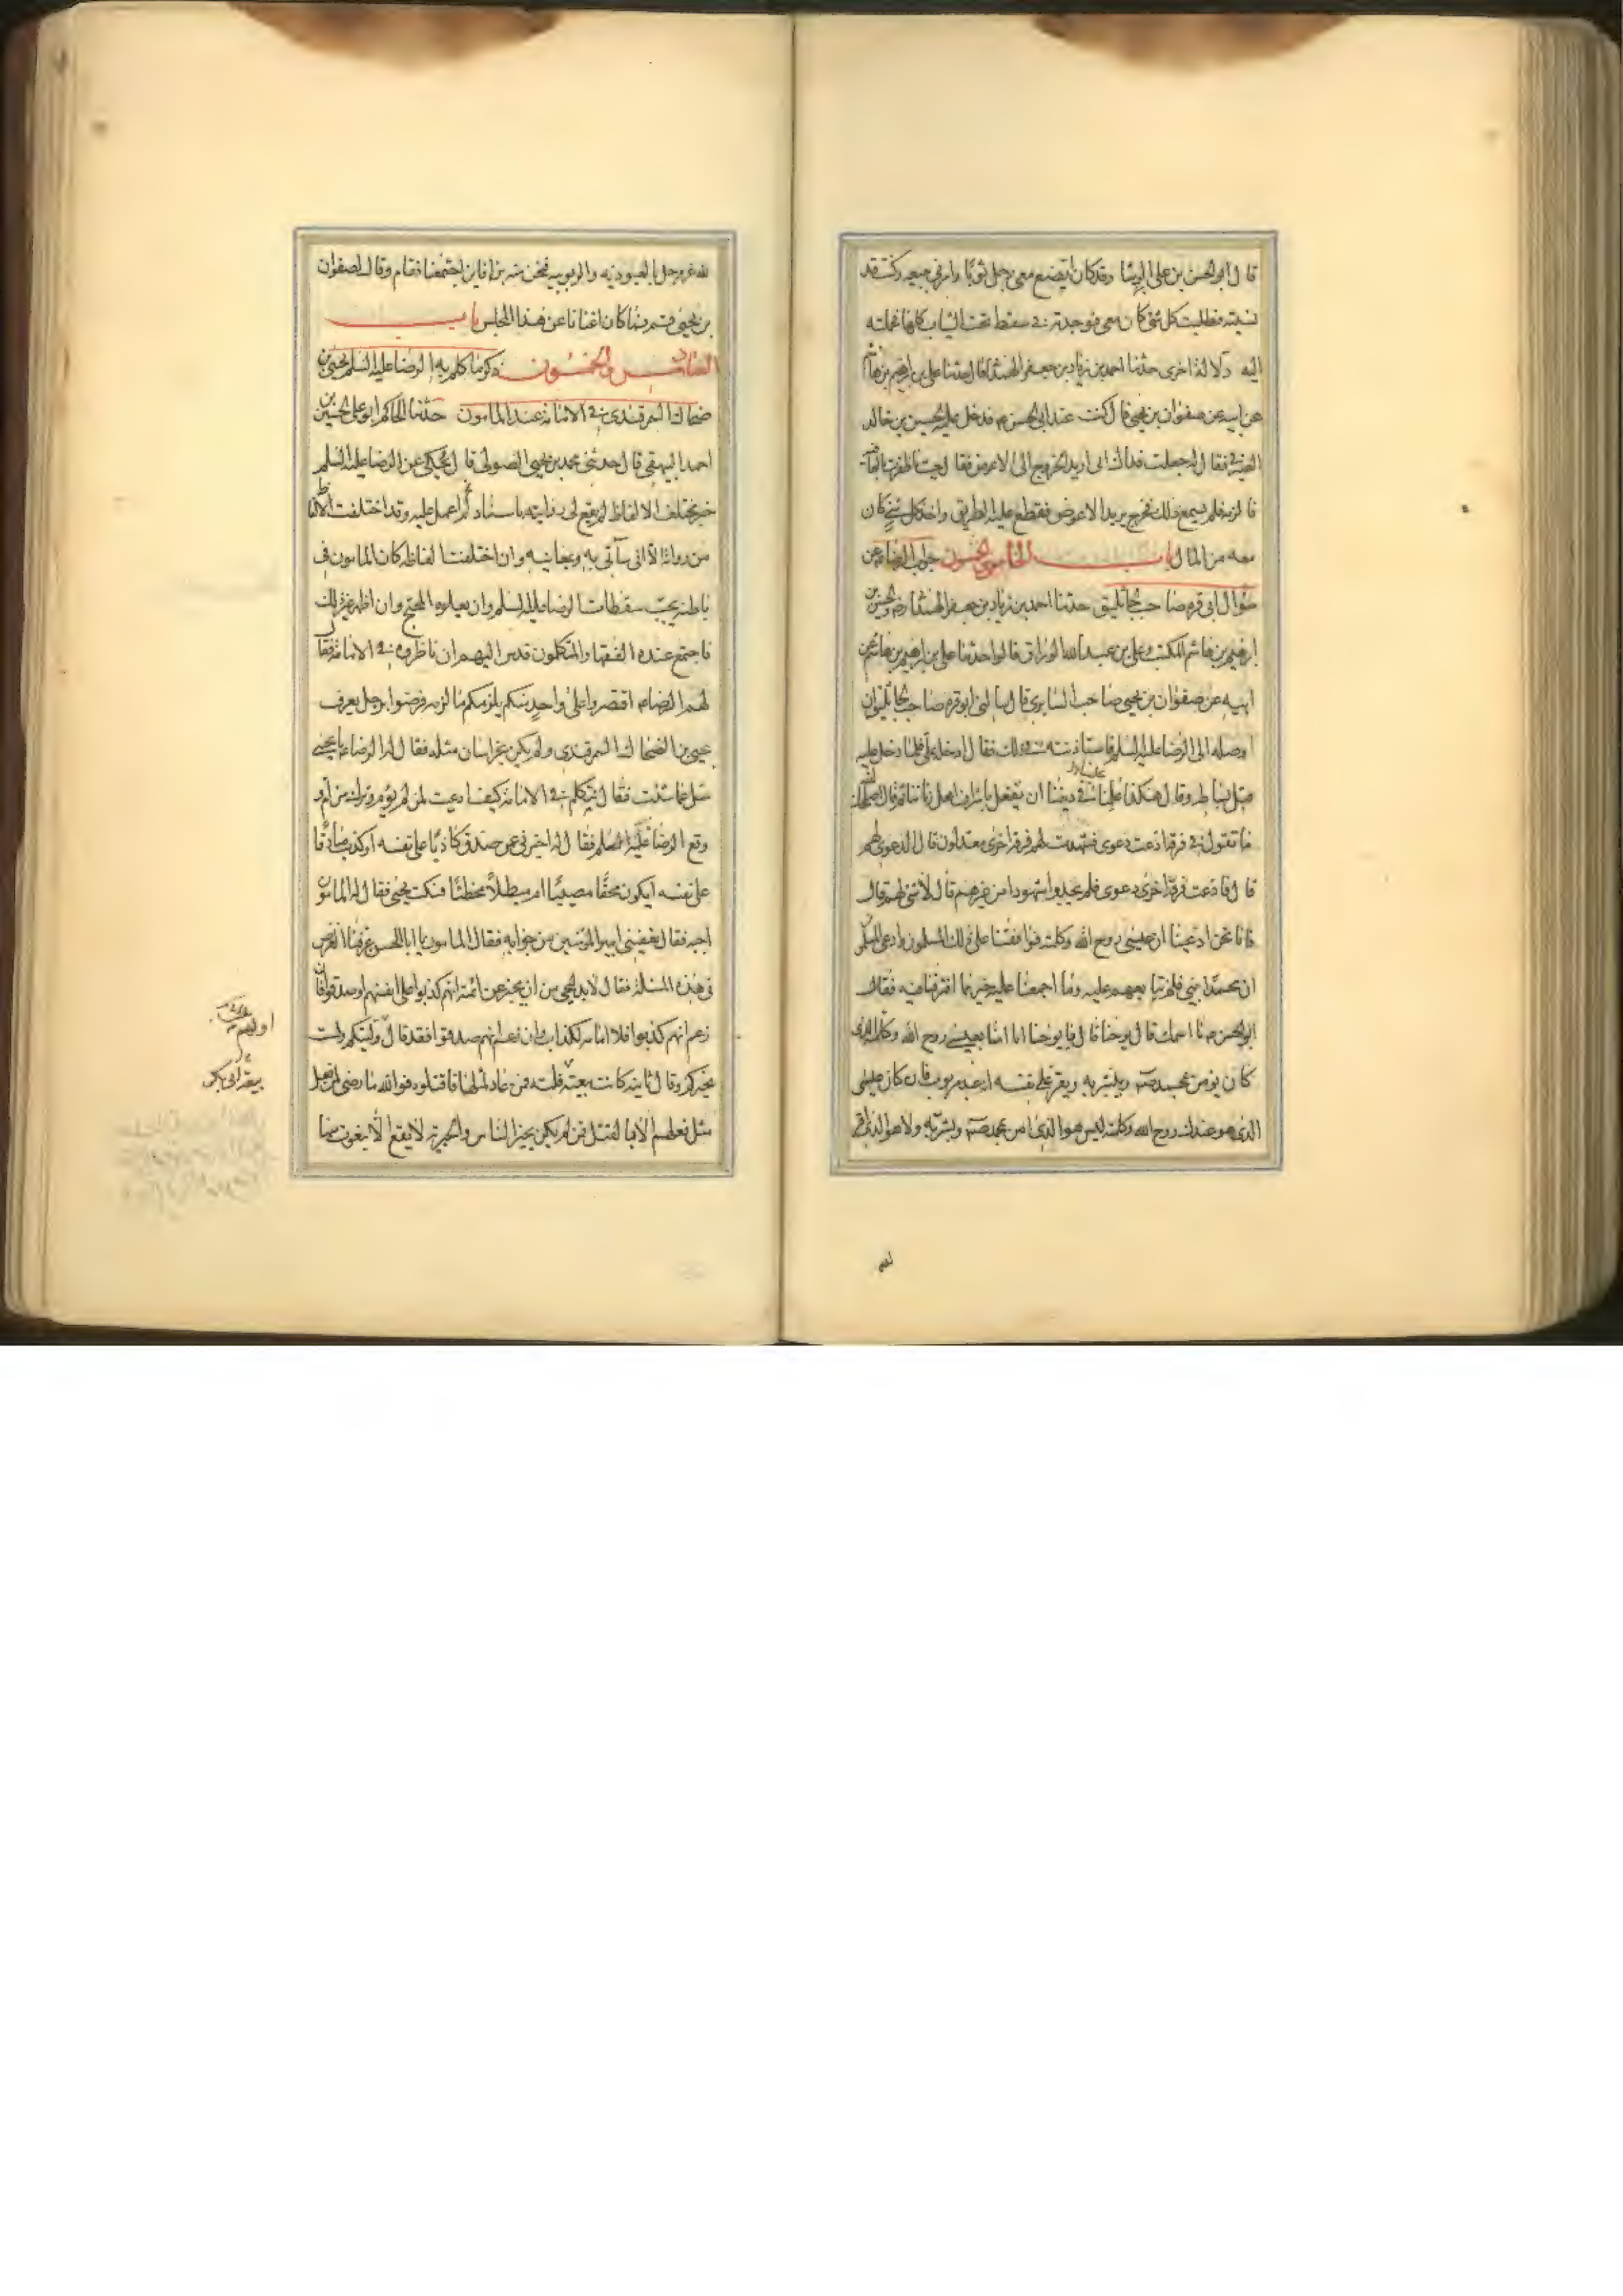 قال ابو الحسن بن علی الوشا وقد کان ابضع معی رجل ثوبا وامرنی ببیعه وکنت قد
نسیته فطلبت کل شئ کان معی فوجدته فی سفط تحت الثیاب کلها فحملته
الیه دلالة اخری حدثنا احمد بن زیاد بن جعفر الهمدانی قال حدثنا علی بن ابرهیم بن هاشم
عن ابیه عن صفوان بن یحیی قال کنت عند ابی الحسن ع فدخل علیه الحسین بن خالد
الصیرفی فقال له جعلت فداک انی ارید الخروج الی الاعوض فقال حیث ما ظفرت بالعافیة
فالزمه فلم یسمع ذلک فخرج یرید الاعوض فقطع علیه الطریق واخذ کل شئ کان
معه من المال باب الخامس والخمسون جواب الرضا عن
سؤال ابی قره صاحب الجاثلیق حدثنا احمد بن زیاد بن جعفر الهمدانی رض والحسین بن
ابرهیم بن هاشم المکتب وعلی بن عبد الله الوراق قالوا حدثنا علی بن ابرهیم بن هاشم عن
ابیه عن صفوان بن یحیی صاحب السابری قال سالنی ابو قره صاحب الجاثلیق ان
اوصله الی الرضا علیه السلم فاستاذنته فی ذلک فقال ادخله علی فلما دخل علیه
قبل بساطه وقال هکذا علینا فی دیننا ان نفعل باشراف اهل زماننا ثم قال اصلحک الله
ما تقول فی فرقة ادعت دعوی فشهدت لهم فرقة اخری معدلون قال الدعوی لهم
قال فادعت فرقة اخری دعوی فلم یجدوا شهودا من غیرهم قال لا شئ لهم قال
فانا نحن ادعینا ان عیسی روح الله وکلمته فوافقنا علی ذلک المسلمون وادعی المسلمون
ان محمدا نبی فلم نتابعهم علیه وما اجمعنا علیه خیر مما افترقنا فیه فقال
ابو الحسن ع ما اسمک قال یوحنا قال یا یوحنا انا امنا بعیسی روح الله وکلمته الذی
کان یؤمن بمحمد ص ویبشر به ویقر علی نفسه انه عبد مربوب فان کان عیسی
الذی هو عندک روح الله وکلمته لیس هو الذی امن بمحمد ص وبشر به ولا هو الذی اقر
لله عز وجل بالعبودیه والربوبیه فنحن منه براء فاین اجتمعنا فقام وقال لصفوان
بن یحیی قم فما کان اغنانا عن هذا المجلس باب
السادس والخمسون ذکر ما کلم به الرضا علیه السلم یحیی بن
ضحاک السمرقندی فی الامامة عند المامون حدثنا الحاکم ابو علی الحسین بن
احمد البیهقی قال حدثنی محمد بن یحیی الصولی قال یحکی عن الرضا علیه السلم
خبر مختلف الالفاظ لم یقع لی روایته باسناد اعمل علیه وقد اختلفت الالفاظ
من رواته الا انی سآتی به وبمعانیه وان اختلفت الفاظه کان المامون فی
باطنه یحب سقطات الرضا علیه السلم وان یعلوه المحتج وان اظهر غیر ذلک
فاجتمع عنده الفقهاء والمتکلمون فدس الیهم ان ناظروه فی الامامة فقال
لهم الرضا ع اقتصروا علی واحد منکم یلزمکم ما لزمه فرضوا برجل یعرف
بیحیی بن الضحاک السمرقندی ولم یکن بخراسان مثله فقال له الرضا ع یا یحیی
سل عما شئت فقال نتکلم فی الامامة کیف ادعیت لمن لم یؤم وترکت من ام و
وقع الرضا علیه السلم فقال له اخبرنی عمن صدق کاذبا علی نفسه او کذب صادقا
علی نفسه ایکون محقا مصیبا ام مبطلا مخطئا فسکت یحیی فقال له المامون
اجبه فقال یعفینی امیر المؤمنین من جوابه فقال المامون یا ابا الحسن عرفنا الغرض
فی هذه المسئلة فقال لابد لیحیی من ان یخبر عن ائمته انهم کذبوا علی انفسهم او صدقوا فان
زعم انهم کذبوا فلا امامة لکذاب وان زعم انهم صدقوا فقد قال ولیتکم ولست
بخیرکم وقال ثانیه کانت بیعته فلتة فمن عاد لمثلها فاقتلوه فوالله ما رضی لمن فعل
مثل فعلهم الا بالقتل فمن لم یکن بخیر الناس والخیریة لا یقع الا بنعوت منها
اولهم
بیعة ابی بکر